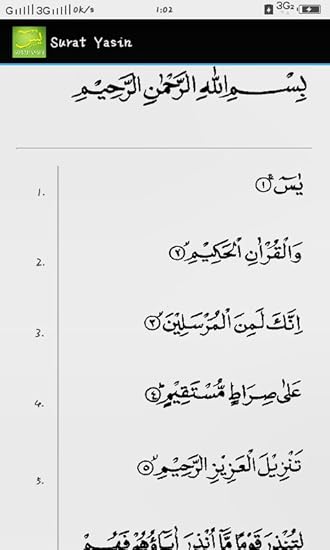 G 3G 0K/s 1:02 3G
Surat Yasin
بِسْمِ اللهِ الرَّحْمٰنِ الرَّحِيْمِ
1. يٰسٓ ۚ ﴿١﴾
2. وَالْقُرْاٰنِ الْحَكِيْمِ ۙ ﴿٢﴾
3. اِنَّكَ لَمِنَ الْمُرْسَلِيْنَ ۙ ﴿٣﴾
4. عَلٰى صِرَاطٍ مُّسْتَقِيْمٍ ۗ ﴿٤﴾
5. تَنْزِيْلَ الْعَزِيْزِ الرَّحِيْمِ ۙ ﴿٥﴾
لِتُنْذِرَ قَوْمًا مَّآ اُنْذِرَ اٰبَاۤؤُهُمْ فَهُمْ